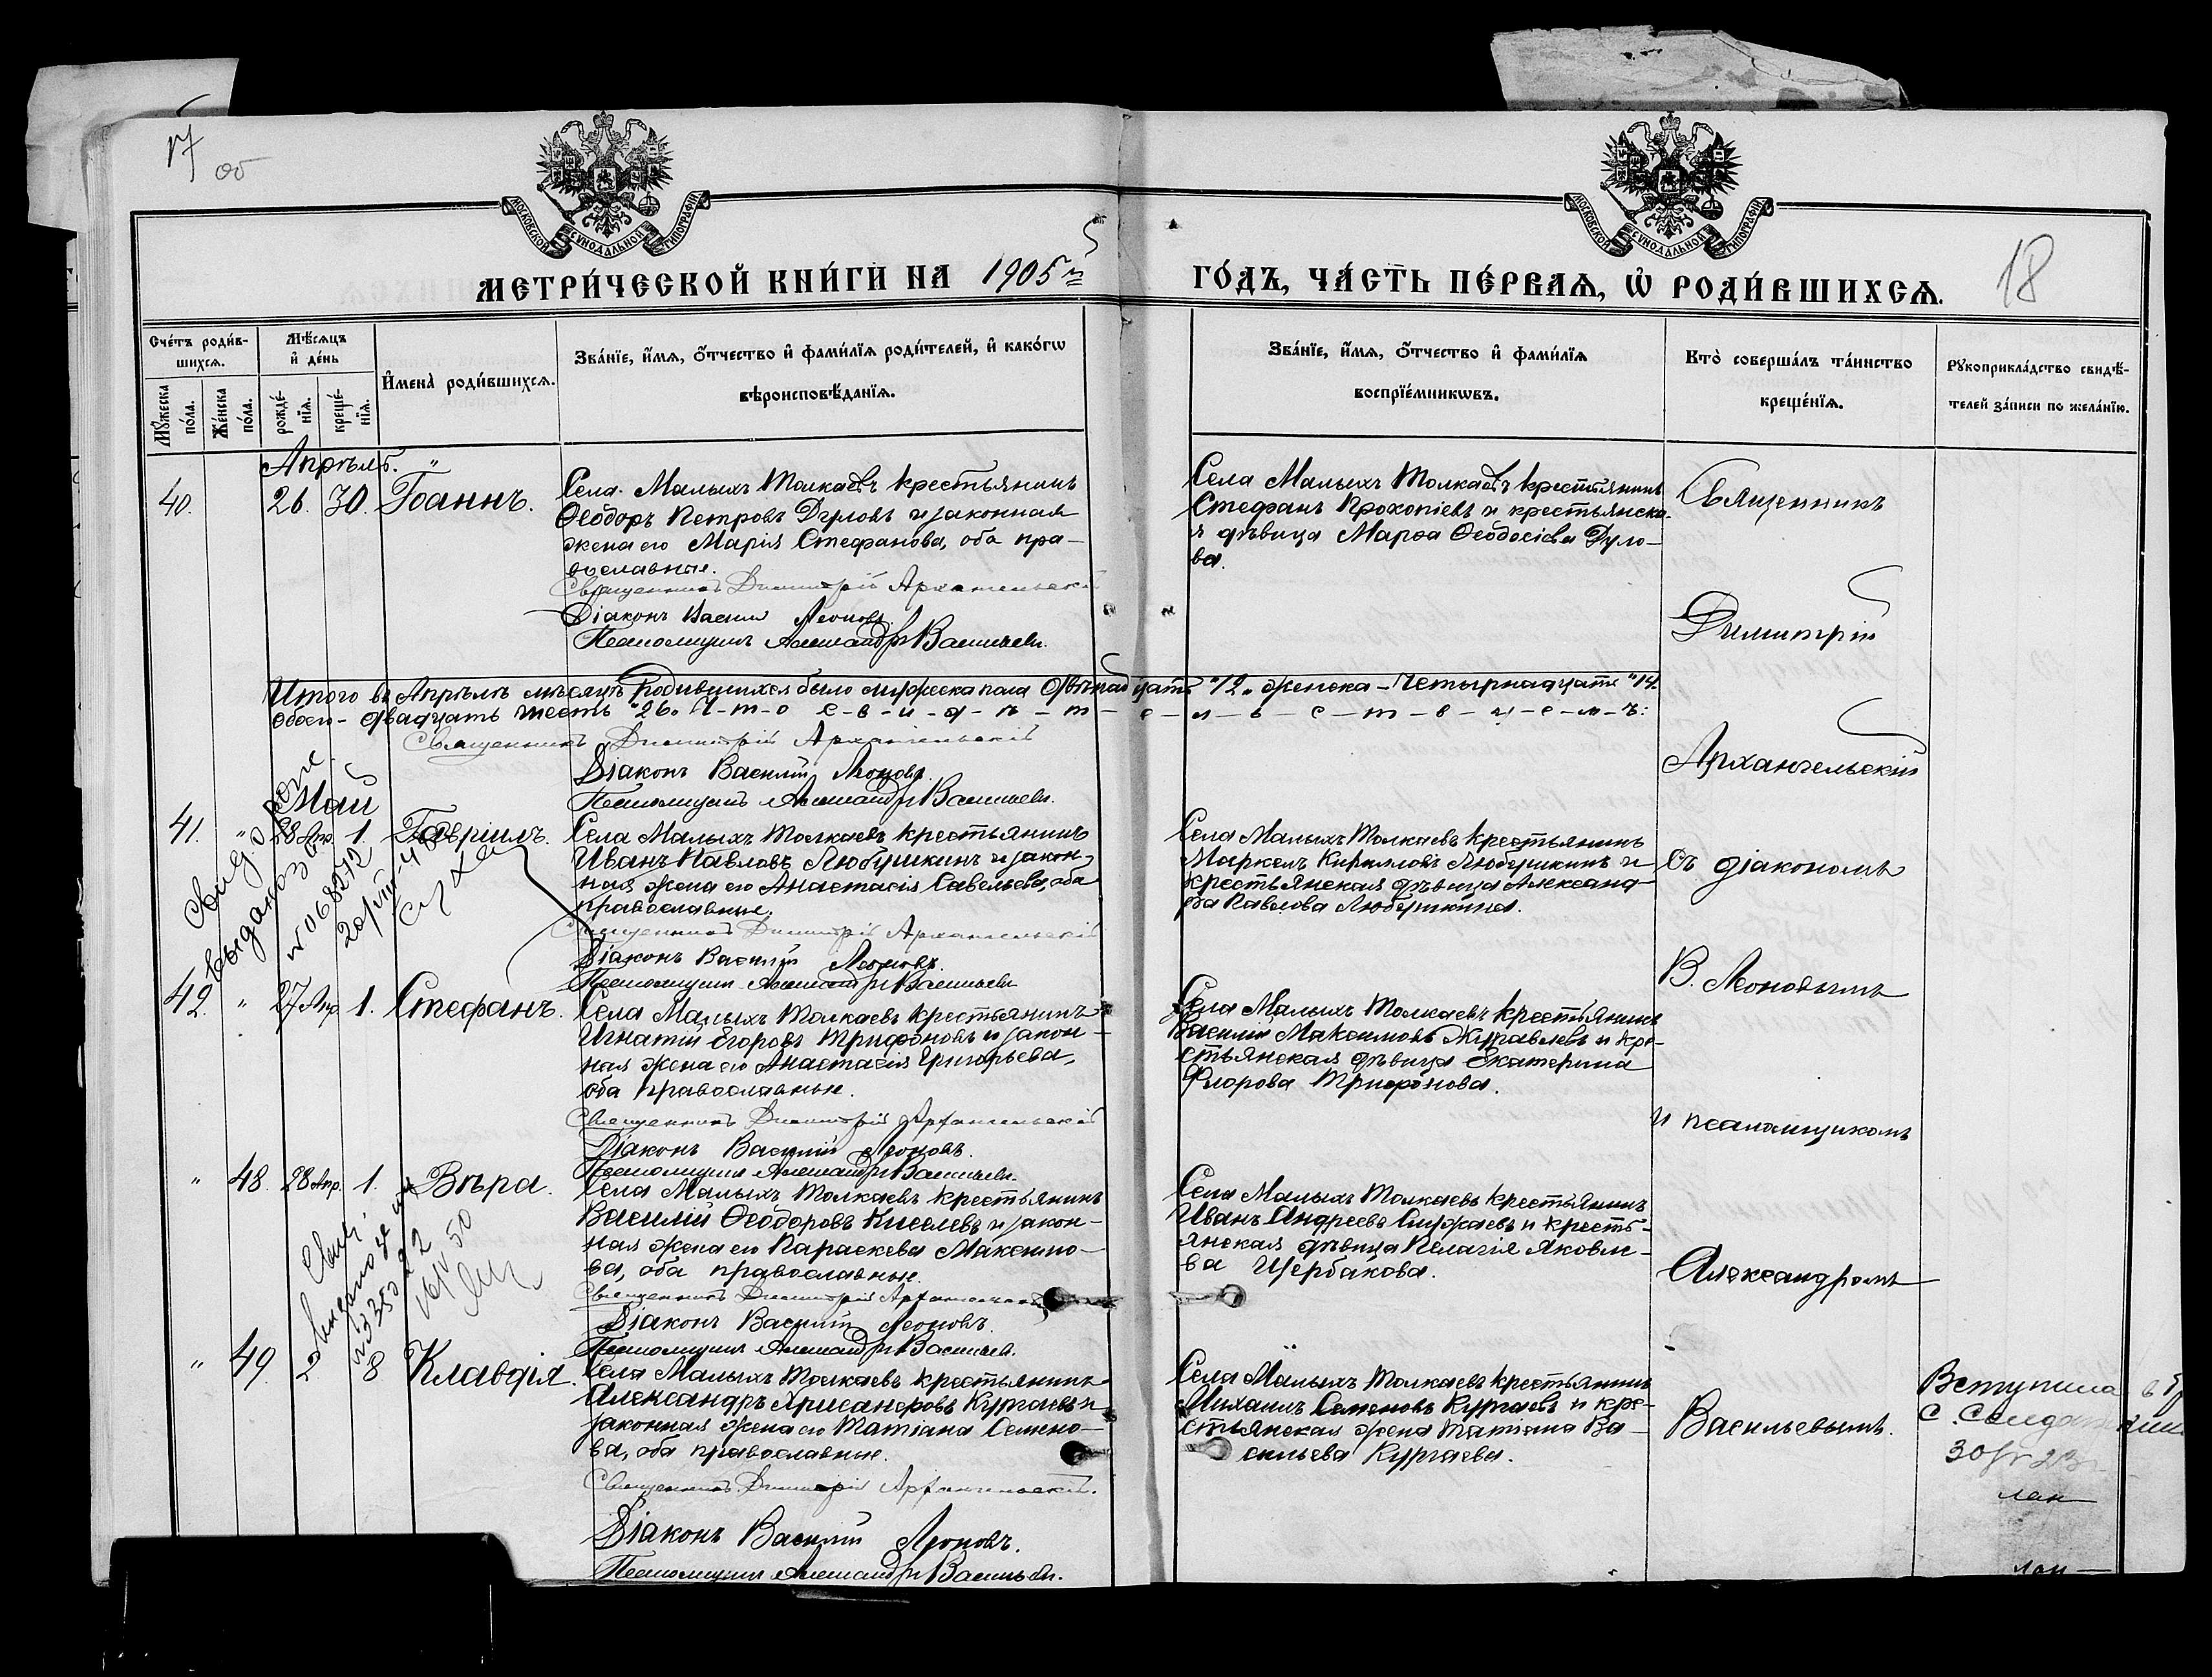 17 об
МОСКОВСКОЙ СѴНОДАЛЬНОЙ ТИПОГРАФІИ
МОСКОВСКОЙ СѴНОДАЛЬНОЙ ТИПОГРАФІИ
МЕТРИ́ЧЕСКОЙ КНИ́ГИ НА 1905 й
ГО́ДЪ, ЧА́СТЬ ПЕ́РВАѦ, Ѡ РОДИ́ВШИХСѦ.
18
Сче́тъ роди́в-
шихсѧ.
Мꙋжеска
по́ла.
Же́нска
по́ла.
Мѣ́сѧцъ
и де́нь
рожде́-
нїѧ.
креще́-
нїѧ.
И҆мена̀ роди́вшихсѧ.
Зва́нїе, и҆́мѧ, о҆́тчество и҆ фами́лїѧ роди́телей, и҆ како́гѡ
вѣроисповѣ́данїѧ.
Зва́нїе, и҆́мѧ, о҆́тчество и҆ фами́лїѧ
воспрїе́мникѡвъ.
Кто̀ соверша́лъ та́инство
креще́нїѧ.
Рꙋкоприкла́дство свидѣ́-
телей за́писи по жела́нїю.
Апрѣль.
40.
26. 30. Іоаннъ.
Села Малыхъ Толкаевъ крестьянинъ
Ѳеодоръ Петровъ Дуловъ и законная
жена его Марія Стефанова, оба пра-
вославные.
Священникъ Димитрій Архангельскій
Діаконъ Василій Леоновъ.
Псаломщикъ Александръ Васильевъ.
Села Малыхъ Толкаевъ крестьянинъ
Стефанъ Прокопіевъ и крестьянска-
я дѣвица Марѳа Ѳеодосіева Дуло-
ва.
Священникъ
Димитрій
Архангельскій
съ діакономъ
В. Леоновымъ
и псаломщикомъ
Александромъ
Васильевымъ.
Итого въ Апрѣлѣ мѣсяцѣ родившихся было мужеска пола двѣнадцать "12" женска - Четырнадцать "14"
обоего - двадцать шесть "26" Ч-т-о с-в-и-д-ѣ-т-е-л-ь-с-т-в-у-е-м-ъ:
Священникъ Димитрій Архангельскій
Діаконъ Василій Леоновъ.
Псаломщикъ Александръ Васильевъ.
Май
41. " 28 Апр. 1. Гавріилъ.
Села Малыхъ Толкаевъ крестьянинъ
Иванъ Павловъ Любушкинъ и закон-
ная жена его Анастасія Савельева, оба
православные.
Священникъ Димитрій Архангельскій
Діаконъ Василій Леоновъ.
Псаломщикъ Александръ Васильевъ
Села Малыхъ Толкаевъ крестьянинъ
Маркелъ Кирилловъ Любушкинъ и
крестьянская дѣвица Александ-
ра Павлова Любушкина.
42. " 27 Апр. 1. Стефанъ.
Села Малыхъ Толкаевъ крестьянинъ
Игнатій Егоровъ Трифоновъ и закон-
ная жена его Анастасія Григорьева,
оба православные.
Священникъ Димитрій Архангельскій
Діаконъ Василій Леоновъ.
Псаломщикъ Александръ Васильевъ.
Села Малыхъ Толкаевъ крестьянинъ
Василій Максимовъ Журавлевъ и кре-
стьянская дѣвица Екатерина
Флорова Трифонова.
" 48. 28 Апр. 1. Вѣра.
Села Малыхъ Толкаевъ крестьянинъ
Василій Ѳеодоровъ Киселевъ и закон-
ная жена его Параскева Максимо-
ва, оба православные.
Священникъ Димитрій Архангельскій
Діаконъ Василій Леоновъ.
Псаломщикъ Александръ Васильевъ.
Села Малыхъ Толкаевъ крестьянинъ
Иванъ Андреевъ Сиржаевъ и кресть-
янская дѣвица Пелагія Яковле-
ва Щербакова.
" 49. 2 8 Клавдія.
Села Малыхъ Толкаевъ крестьянинъ
Александръ Хрисанфовъ Кургаевъ и
законная жена его Татіана Семено-
ва, оба православные.
Священникъ Димитрій Архангельскій.
Діаконъ Василій Леоновъ.
Псаломщикъ Александръ Васильевъ.
Села Малыхъ Толкаевъ крестьянинъ
Михаилъ Семеновъ Кургаевъ и кре-
стьянская жена Татіана Ва-
сильева Кургаева.
Вступила